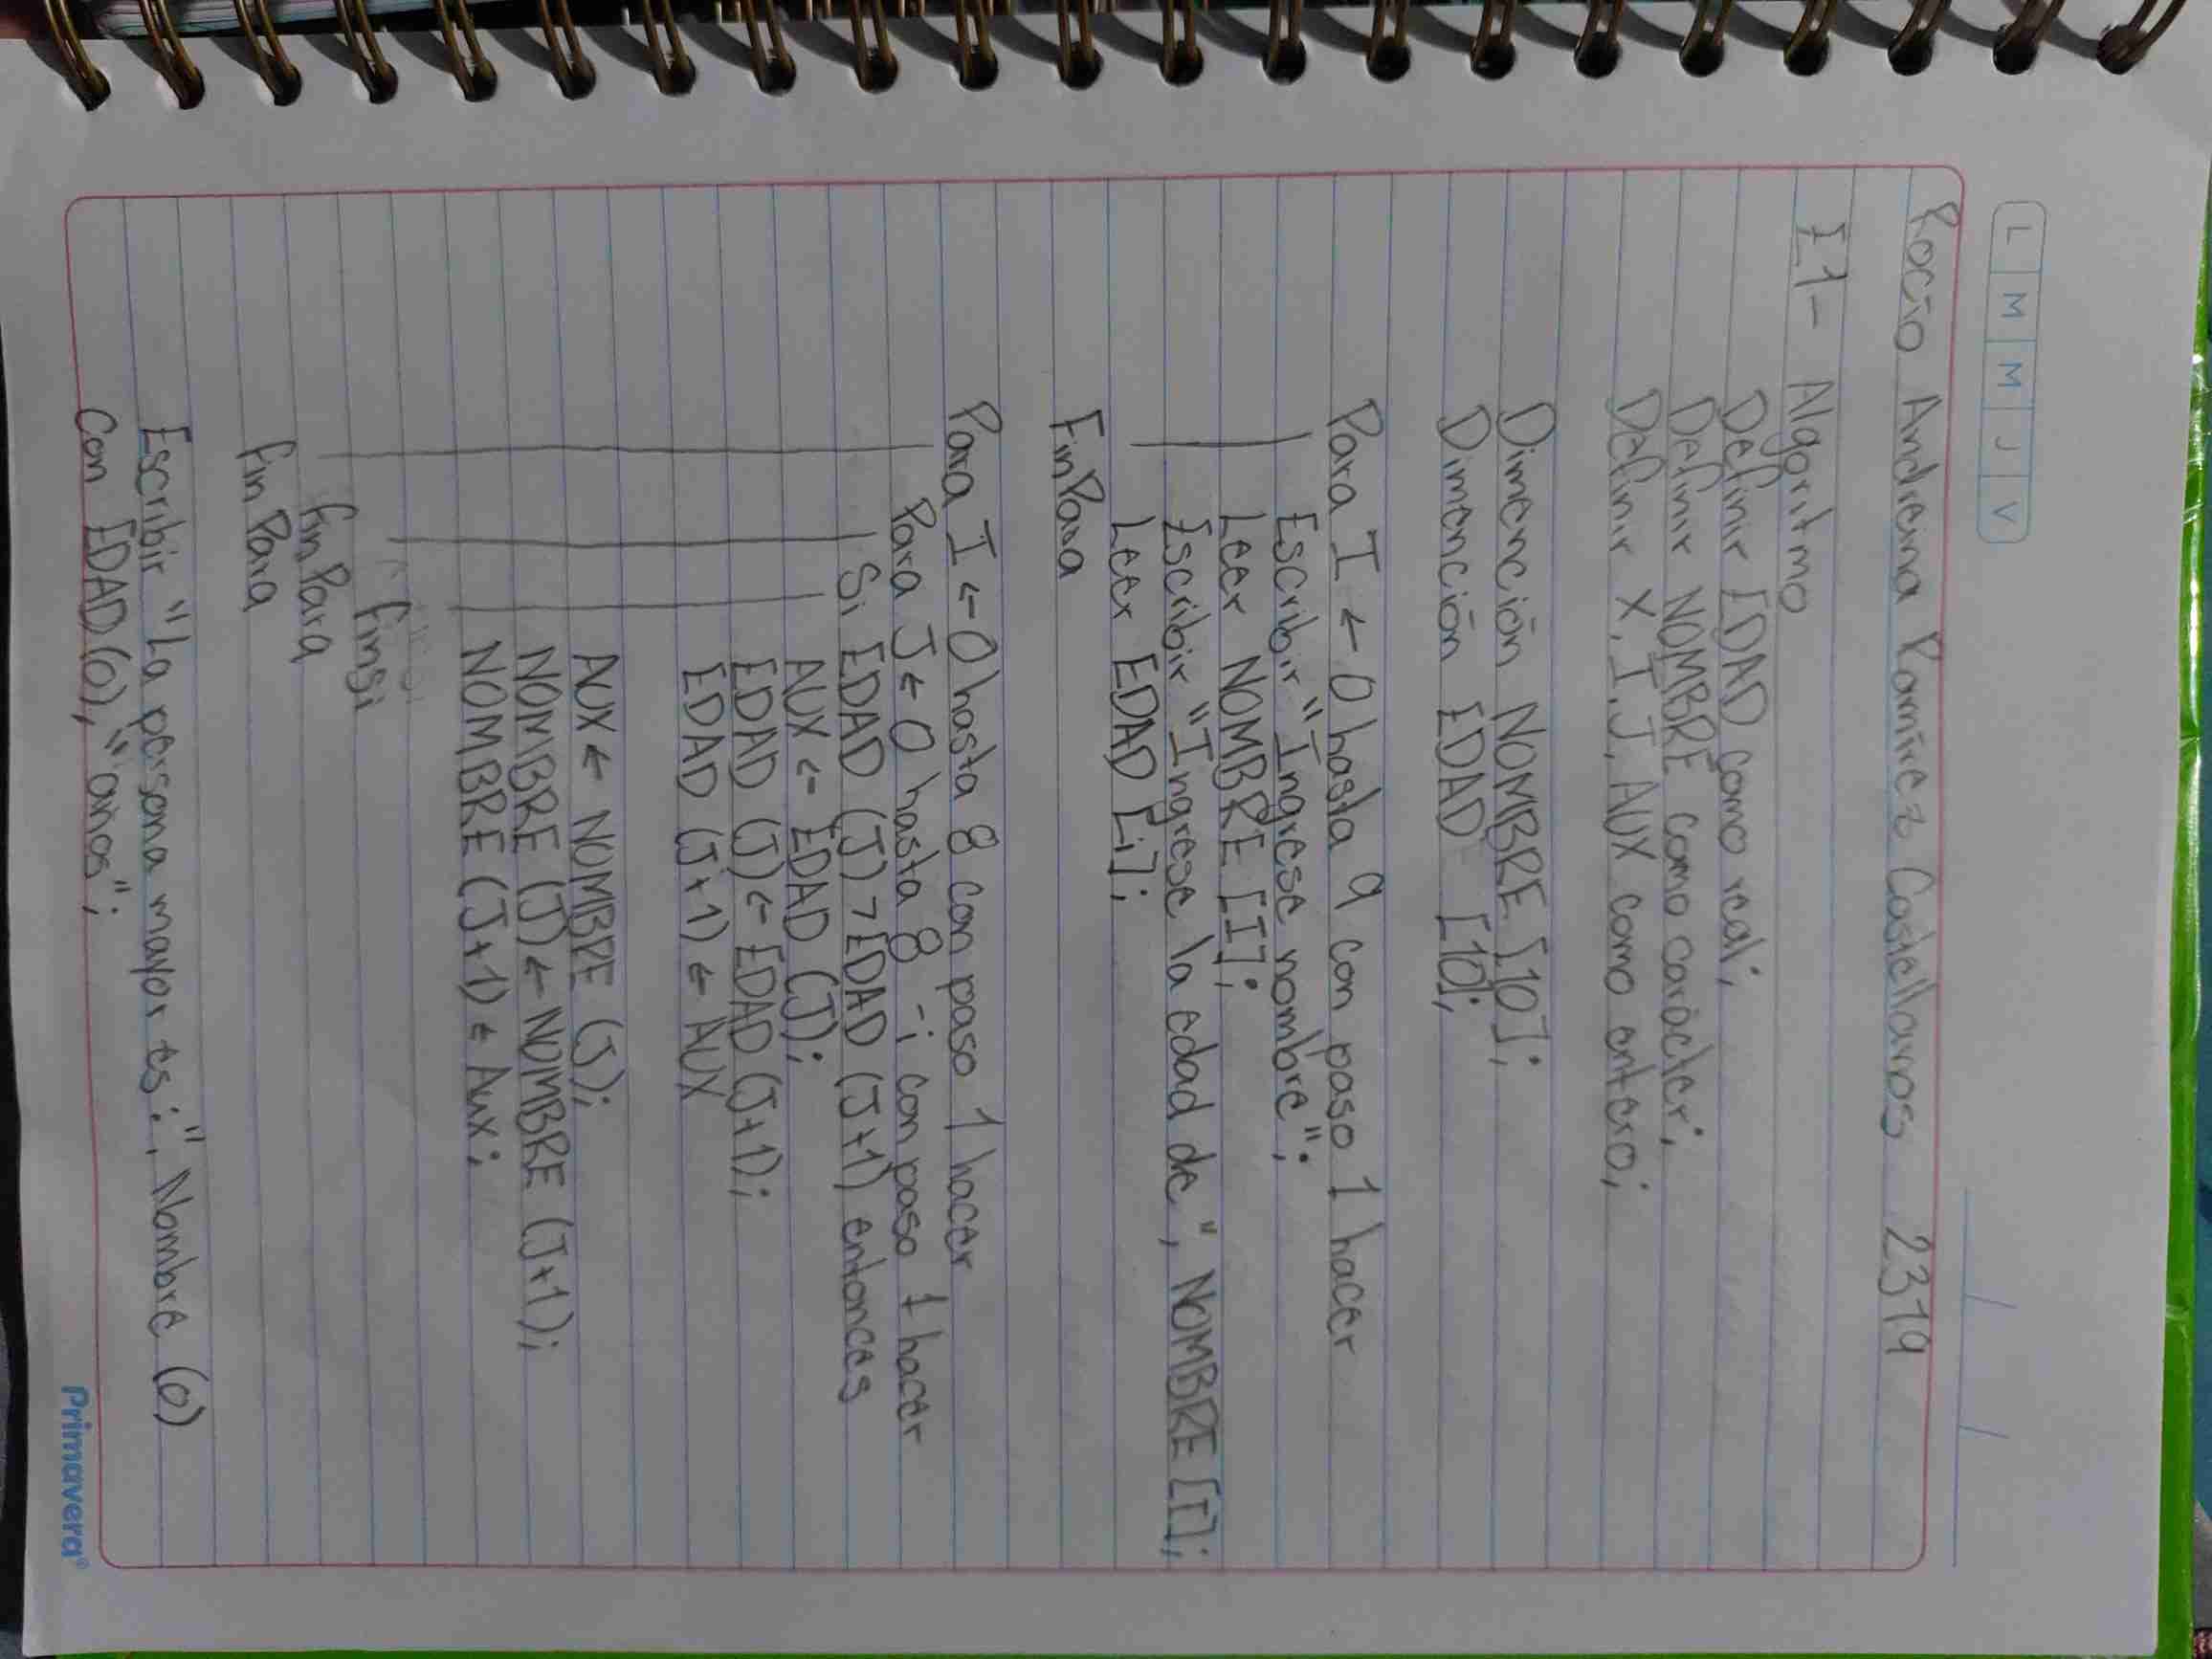 L M M J V
Rocío Andreina Ramírez Castellanos 2319
E1- Algoritmo
Definir EDAD como real;
Definir NOMBRE como carácter;
Definir X, I, J, AUX como entero;
Dimención NOMBRE [10];
Dimención EDAD [10];
Para I ← 0 hasta 9 con paso 1 hacer
Escribir "Ingrese nombre";
Leer NOMBRE [I];
Escribir "Ingrese la edad de", NOMBRE [I];
Leer EDAD [i];
FinPara
Para I ← 0 hasta 8 con paso 1 hacer
Para J ← 0 hasta 8 -i con paso 1 hacer
Si EDAD (J) > EDAD (J+1) entonces
AUX ← EDAD (J);
EDAD (J) ← EDAD (J+1);
EDAD (J+1) ← AUX
AUX ← NOMBRE (J);
NOMBRE (J) ← NOMBRE (J+1);
NOMBRE (J+1) ← Aux;
finsi
fin Para
fin Para
Escribir "La persona mayor es:", Nombre (0)
Con EDAD (0), "años";
Primavera®